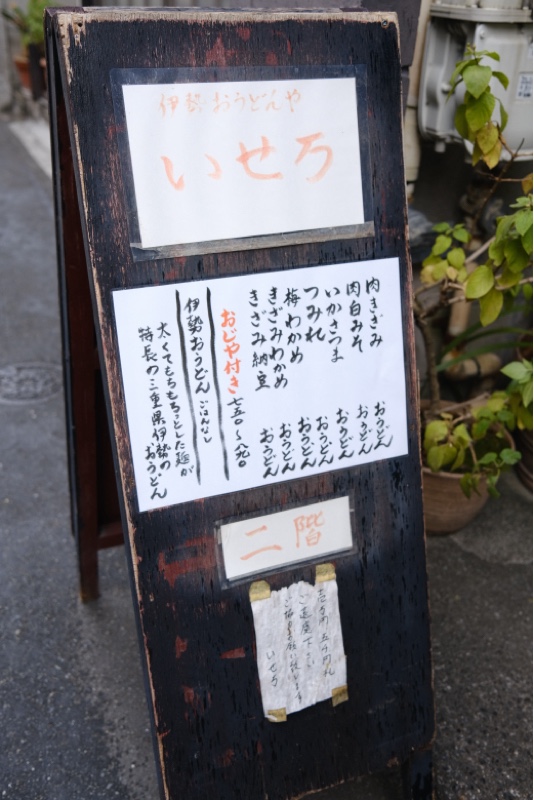 伊勢おうどんや
いせ万
肉きざみ おうどん
肉白みそ おうどん
いかさつま おうどん
つみれ おうどん
梅わかめ おうどん
きざみわかめ おうどん
きざみ納豆 おうどん
おじや付き 七五〇〜八〇
伊勢おうどん ごはんなし
太くてもちもちっとした麺が
特長の三重県伊勢の
おうどん
二階
壱万円 五千円札
ご遠慮下さい
ご協力お願い致します
いせ万